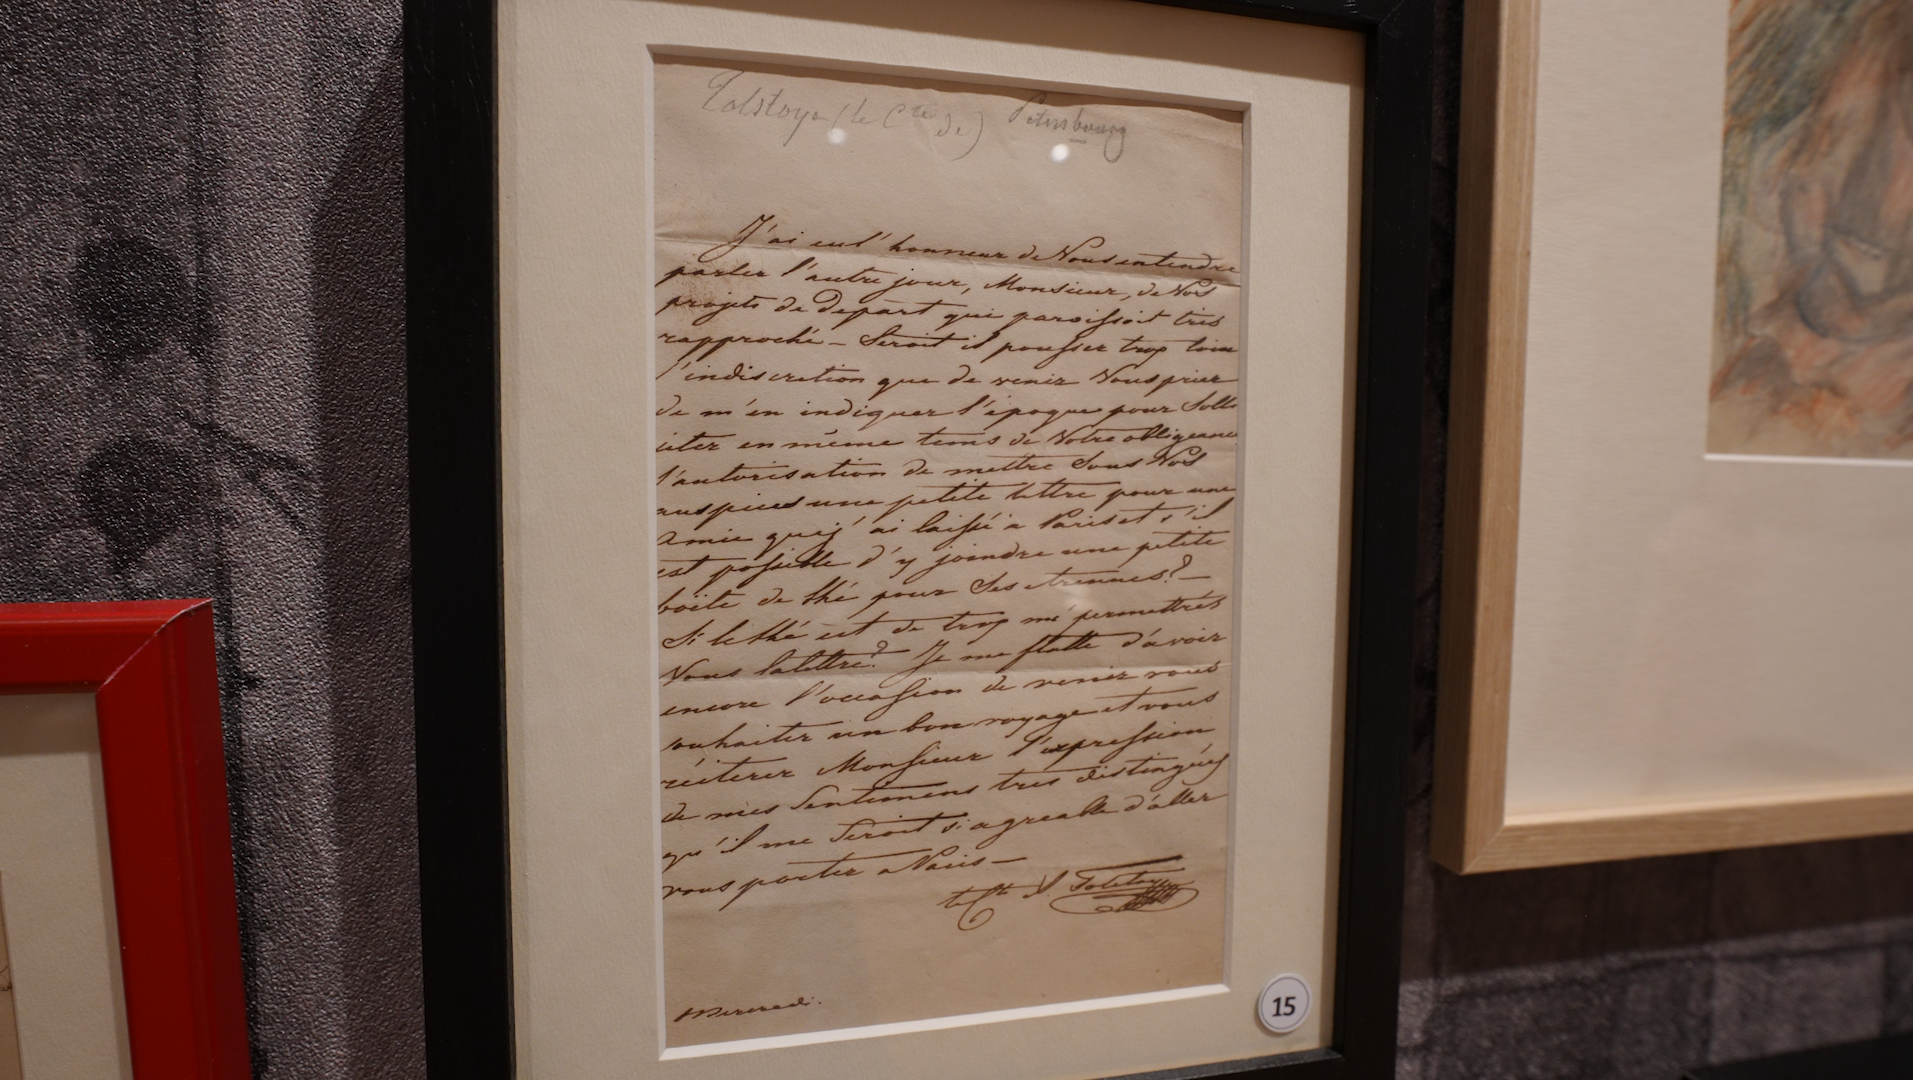 Tolstoy (le Cte de) Petersbourg
J'ai eu l'honneur de Vous entendre
parler l'autre jour, Monsieur, de Vos
projets de Depart qui paroissoit très
rapproché — Seroit il pousser trop loin
l'indiscretion que de venir Vous prier
de m'en indiquer l'époque pour Solli
citer en même tems de Votre obligeance
l'autorisation de mettre Sous Vos
auspices une petite lettre pour une
amie que j'ai laissé a Paris et s'il
est possible d'y joindre une petite
boëte de thé pour Ses etrennes? —
Si le thé est de trop me permettrés
Vous la lettre? Je me flatte d'avoir
encore l'occasion de venir vous
souhaiter un bon voyage et vous
réiterer Monsieur l'expression
de mes Sentimens tres distingués
qu'il me Seroit si agreable d'aller
vous porter a Paris —
le Ct Tolstoy
Mercredi.
15